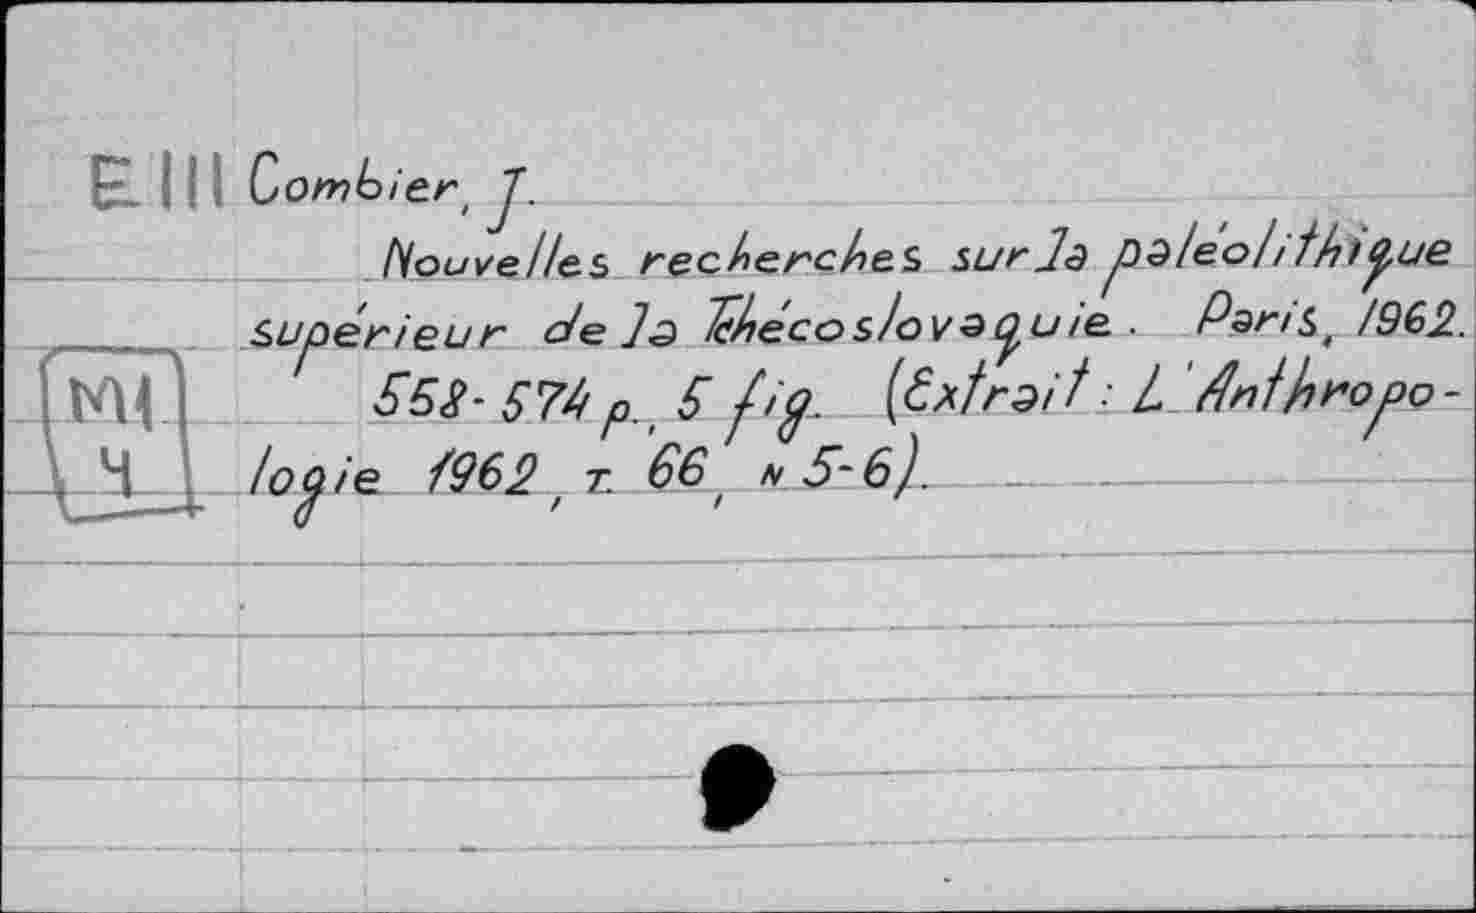 E III Combier, J.
Nouvelles recherches sur la paléolithique
supérieur de la Tchécoslovaquie. Paris, 1962.
558-574 p., 5 fig. (Extrait: L'Anthropo-
logie 1962, т. 66, N 5-6).
Ч